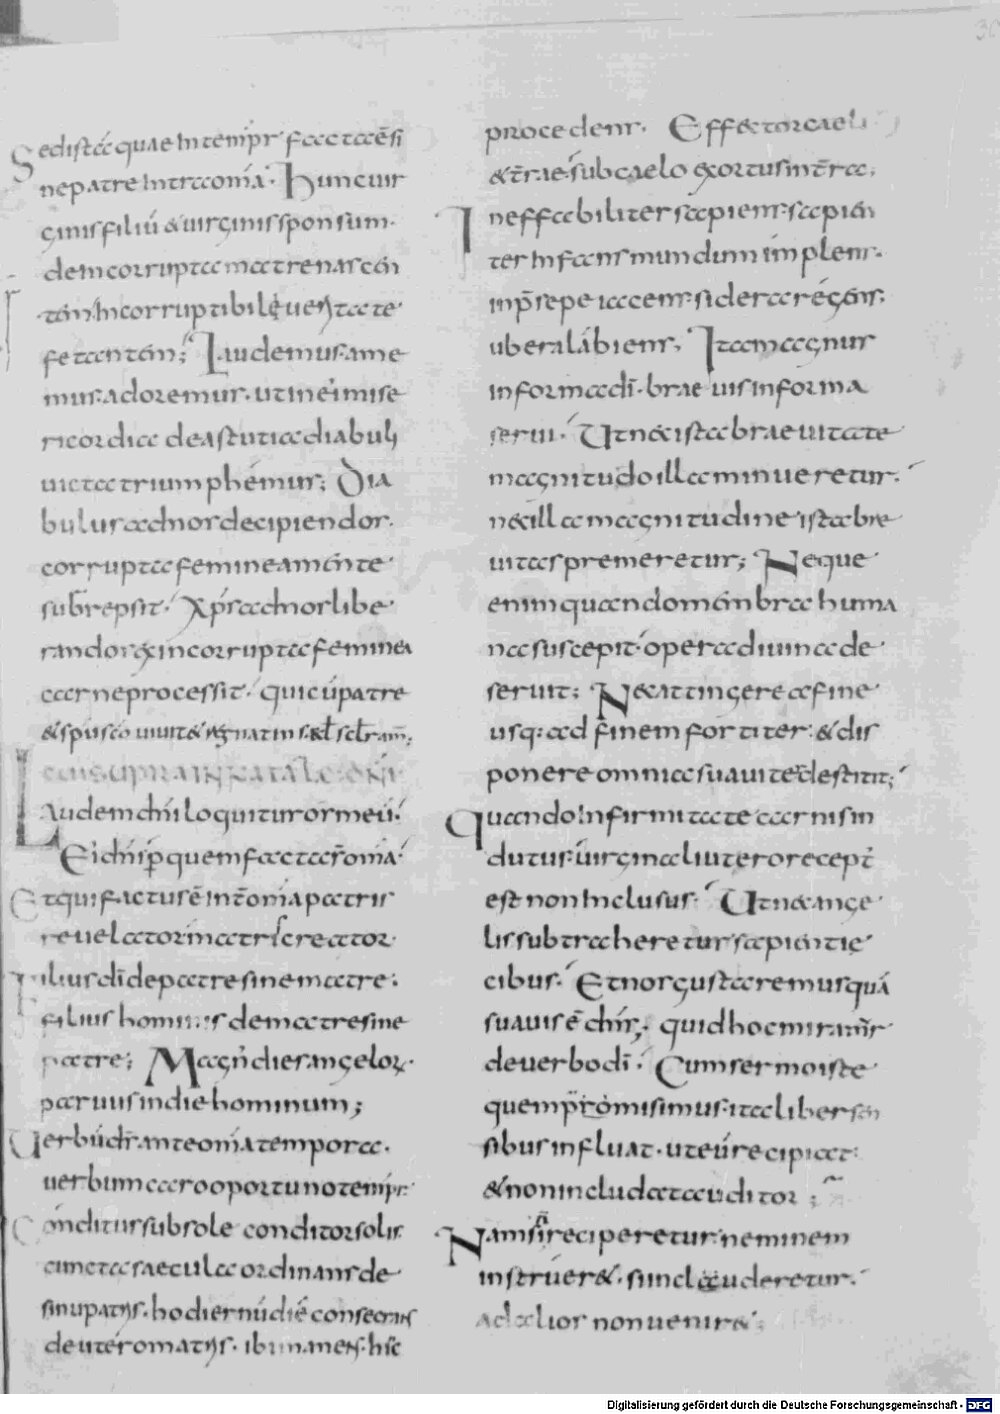 Sed ista quae in temp̄r facta ē si
ne patre intra omia. Hunc uir
ginis filiū & uirginis sponsum.
de incorrupta matre nascen
tem. Incorruptibile ueritate
fetantem; Laudemus. ame
mus. adoremus. ut in ei mise
ricordia de astutia diaboli
uicta triumphemus; Dia
bulus ad nos decipiendos.
corrupta femine a mente
subrepsit. Xp̄s ad nos libe
randos ex incorrupta femine
carne processit. qui cū patre
& sp̄u sc̄o uiuit & regnat in s̄cl̄a sc̄lr̄am;
Laudem dn̄i loquitur os meū.
Ei dn̄i p̄ quem facta s̄ omia.
Et qui factus ē int̄ omia patris
reuelator matris creator
Filius dī de patre sine matre.
filius hominis de matre sine
patre; Magn̄ dies angeloꝝ.
paruus in die hominum;
Uerbū dr̄ ante omia tempora.
uerbum caro oportuno temp̄r.
Conditus sub sole conditor solis
cuncta saecula ordinans de
sinu patris. hodiernū diē consecrans
de utero matris. ibi manens. hīc
procedens. Effector caeli
& t̄rae. sub caelo exortus in t̄ra.
Ineffabiliter sapiens. sapien
ter infans mundum implens.
in p̄sepe iacens. sidera regens.
ubera labiens. Ita magnus
in forma dī. breuis in forma
serui. Ut nec ista breuitate
magnitudo illa minueretur.
nec illa magnitudine ista bre
uitas premeretur; Neque
enim quando membra huma
na suscepit. opera diuina de
seruit; Nec attingere a fine
usq: ad finem fortiter. & dis
ponere omnia suauiter destitit;
Quando infirmitate carnis in
dutus. uirginali utero recept̄
est non inclusus. Ut nec ange
lis subtraheretur sapientię
cibus. Et nos gustaremus quā
suauis ē dn̄s. quid hoc miramr̄
de uerbo dī. Cum sermo iste
quem p̄romisimus. ita liber sen
sibus influat. ut eū recipiat
& non includat auditor;
Nam si n̄ reciperetur. neminem
instruer&. si includeretur.
ad alios non uenir&;